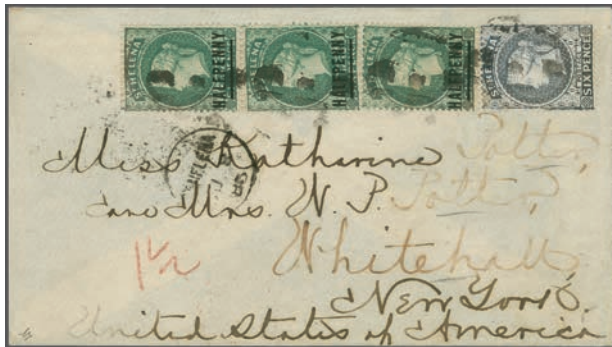 ST HELENA HALFPENNY ST HELENA HALFPENNY ST HELENA HALFPENNY ST HELENA SIX PENCE
Miss Katharine Potter,
Care Mrs. N. P. Potter,
HELENA
1½
Whitehall,
New York.
United States of America